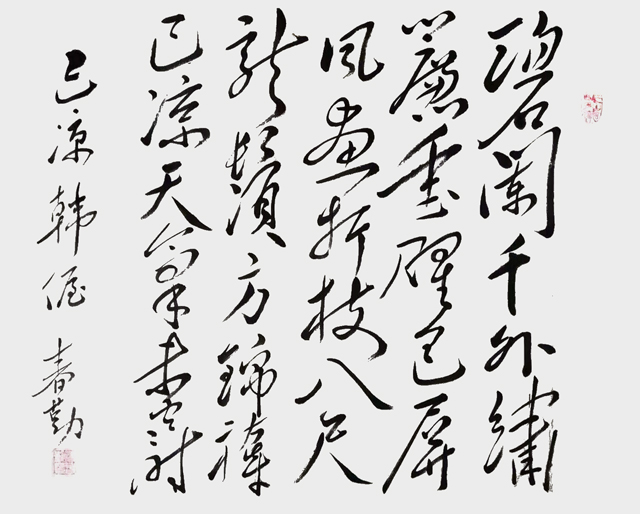 碧闌干外繡
簾垂猩色屏
風畫折枝八尺
龍鬚方錦褥
已涼天氣未寒時
已涼 韓偓 春勤